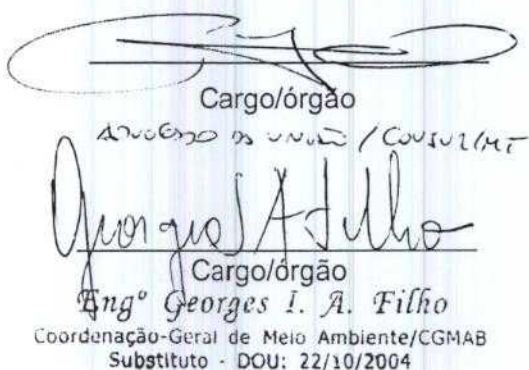 Cargo/órgão
ADVOGADO DA UNIÃO / CONJUR/MT
Georges I A Filho
Cargo/órgão
Engº Georges I. A. Filho
Coordenação-Geral de Meio Ambiente/CGMAB
Substituto - DOU: 22/10/2004